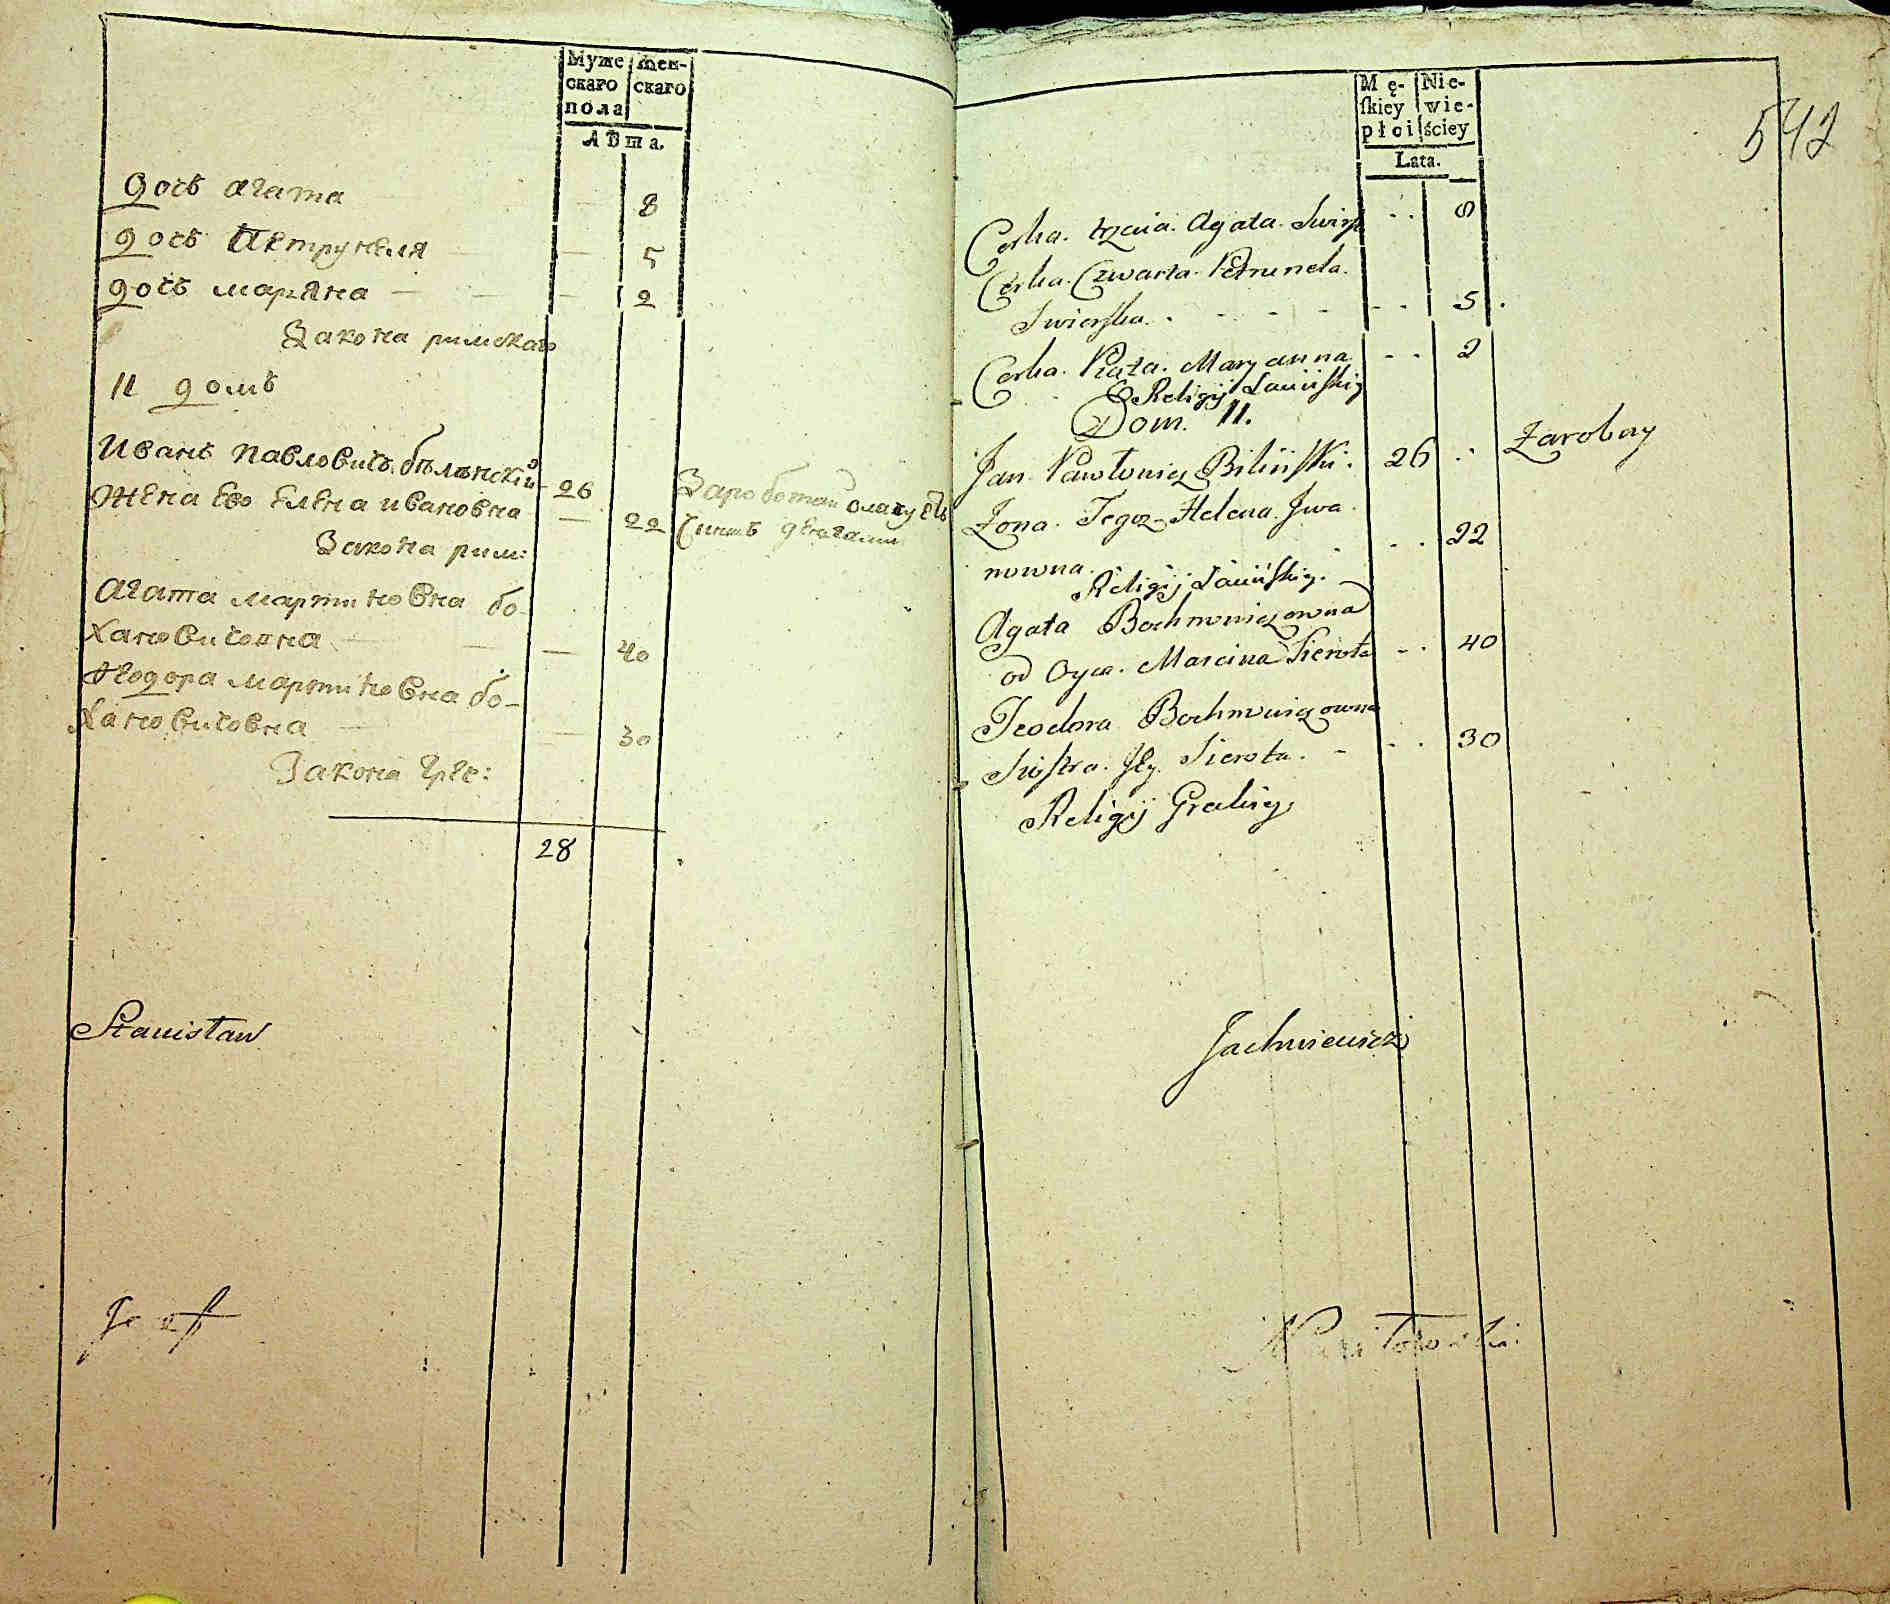 Муже
скаго
пола
Жен-
скаго
лѣта.
дочь агата 8
дочь Петрунеля 5
дочь марѧна 2
Закона римскаго
11 домъ
Иванъ павловичь бѣлѣнскій 26
Жена Его Елена ивановна 22
Заработай
чиншъ денгами
Закона рим:
Агата мартиновна бо-
хановичовна 40
Ѳеодора мартиновна бо-
хановичовна 30
Закона гре:
28
Stanisław
Józef
Mę-
skiey
płci
Nie-
wie-
ściey
Lata.
542
Corka. trzcia. Agata. Swirs 8
Corka. Czwarta. Petrunela.
Swierska. 5
Corka. Piąta. Maryanna 2
Religij Łacińskiy
Dom. 11.
Jan Pawłowicz Biliński. 26 Zarobny
Zona. Tegoz Helena. Iwa
nowna. 22
Religij Łacińskiy.
Agata Bochnowiczowna
od Oyca. Marcina Sierota 40
Teodora Bochnowiczowna
Siostra. Jey. Sierota. 30
Religij Grckiey
Jachniewicz